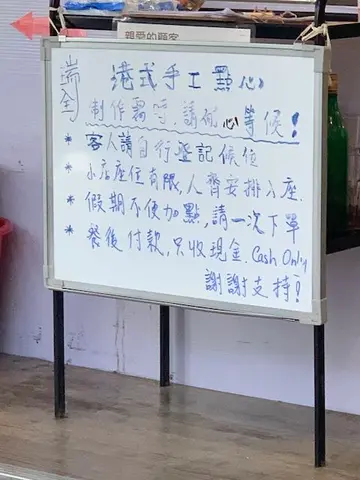 親愛的顧客
港式手工點心
製作需時,請耐心等候!
* 客人請自行登記候位
* 小店座位有限,人齊安排入座.
* 假期不便加點,請一次下單
* 餐後付款,只收現金. Cash Only
謝謝支持!